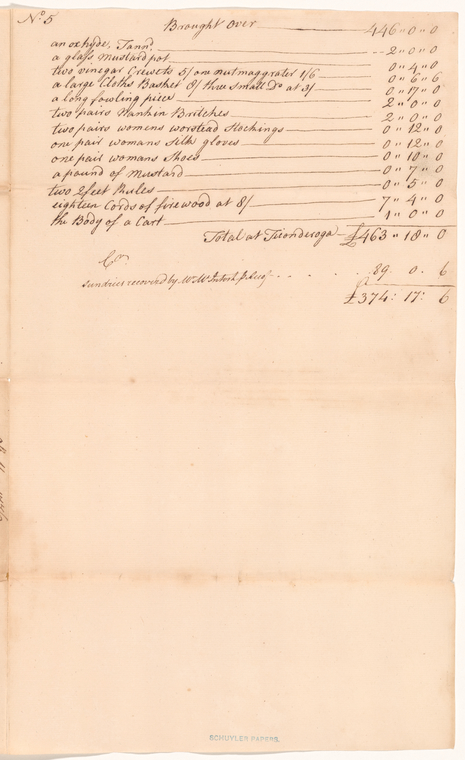 N.º 5
Brought Over 446 " 0 " 0
an oxhyde, Tann.d 2 " 0 " 0
a glass mustard pot 0 " 4 " 0
two vinegar Crewets 5/ one nutmaggrater 1/6 0 " 6 " 6
a large Cloths Basket 8/ three small D.o at 3/ 0 " 17 " 0
a long fowling piece 2 " 0 " 0
two pairs Nankin Britches 2 " 0 " 0
two pairs womens worstead Stockings 0 " 12 " 0
one pair womans Silk gloves 0 " 12 " 0
one pair womans Shoes 0 " 10 " 0
a pound of Mustard 0 " 7 " 0
two 2 feet Rules 0 " 5 " 0
eighteen Cords of firewood at 8/ 7 " 4 " 0
the Body of a Cart 1 " 0 " 0
Total at Ticonderoga £463 " 18 " 0
Cr
Sundries recovered by Mr. McIntosh 89. 0. 6
£374: 17: 6
SCHUYLER PAPERS.